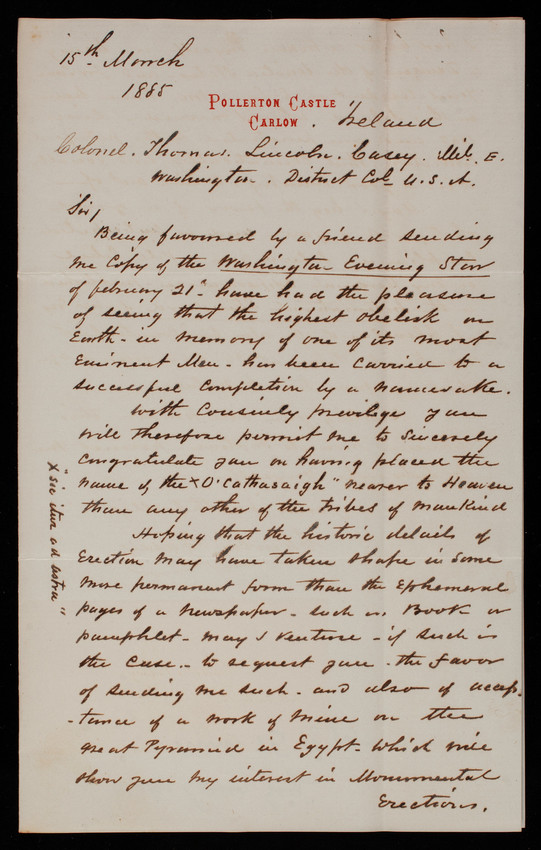 15th March
1885
POLLERTON CASTLE
CARLOW. Ireland
Colonel. Thomas. Lincoln. Casey. Mil. E.
Washington. District Col- U.S.A.
Sir/
Being favoured by a friend sending
me Copy of the Washington Evening Star
of february 21st have had the pleasure
of seeing that the highest obelisk on
Earth - in memory of one of its most
Eminent Men - has been carried to a
successful Completion by a namesake.
With Cousinly privilege you
will therefore permit me to Sincerely
Congratulate you on having placed the
name of the x "O'Cathasaigh" nearer to Heaven
than any other of the tribes of mankind
Hoping that the historic details of
Erection may have taken shape in some
more permanent form than the Ephemeral
pages of a newspaper - such as Book or
pamphlet - may I venture - if such is
the Case - to request you - the favor
of sending me such - and also of accep-
-tance of a work of mine on the
great Pyramid in Egypt - which will
show you my interest in Monumental
Erections.
x "sic itur ad astra"